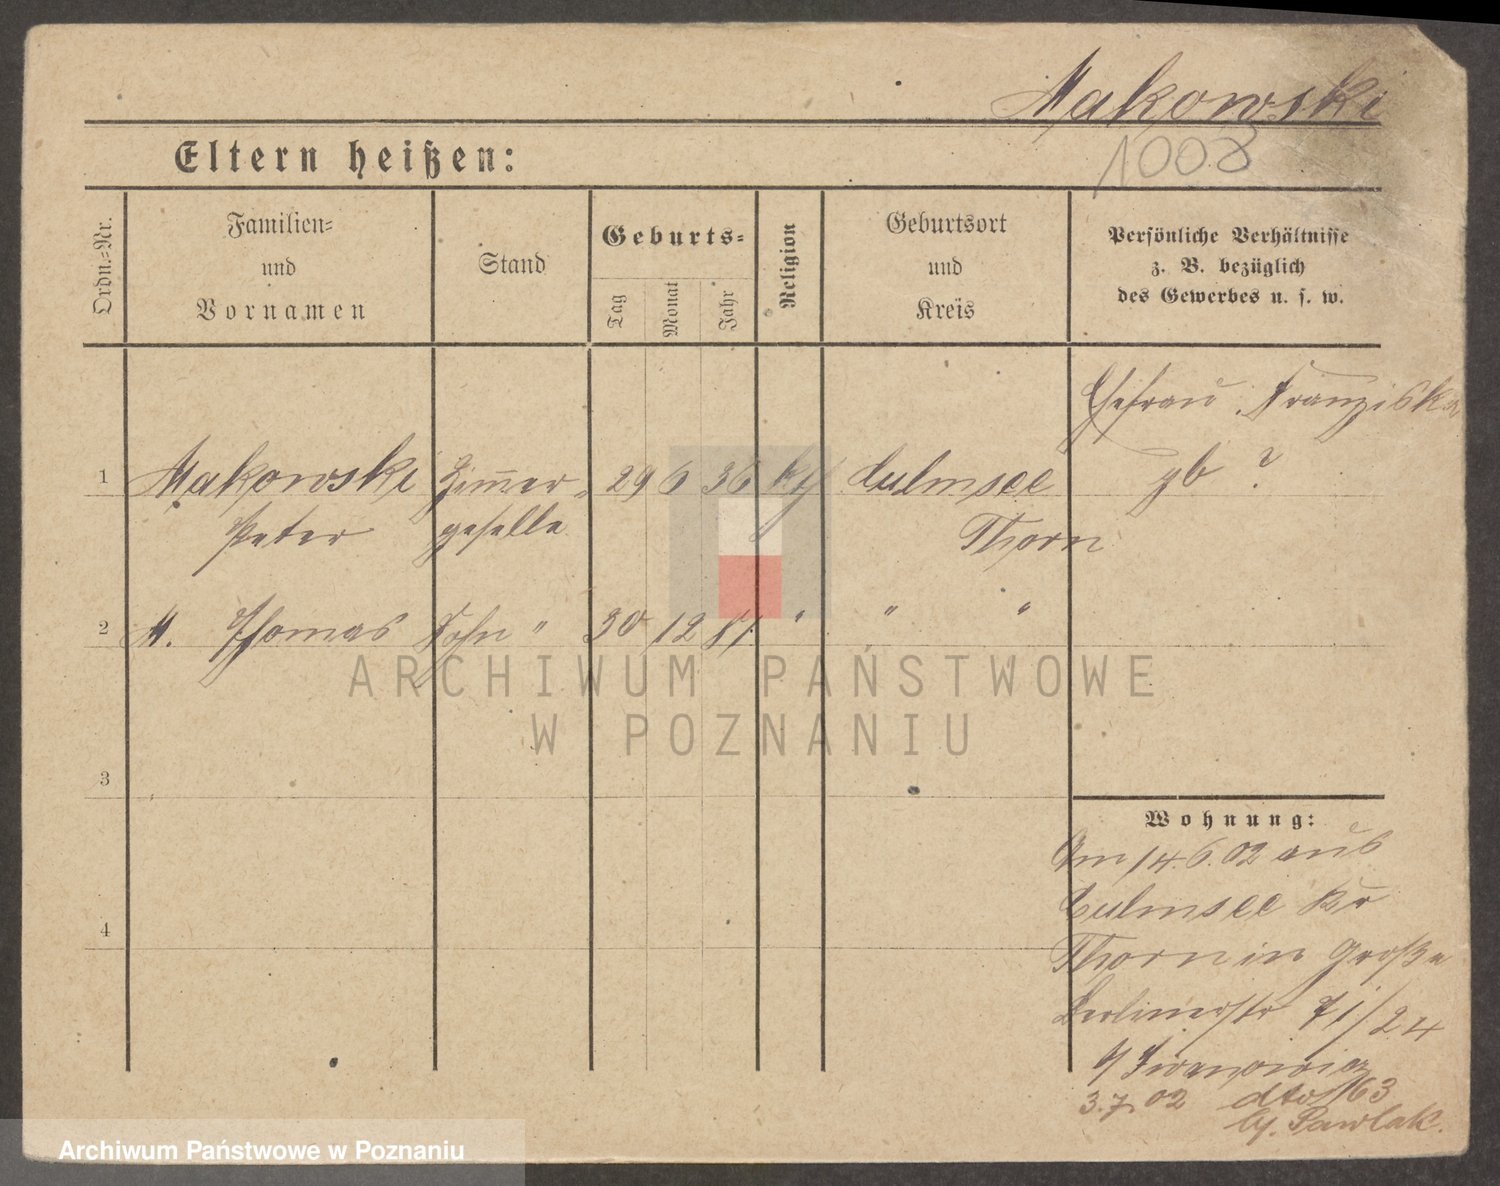 Makowski
1008
Eltern heißen:
Ordn.=Nr.
Familien=
und
Vornamen
Stand
Geburts=
Tag
Monat
Jahr
Religion
Geburtsort
und
Kreis
Persönliche Verhältnisse
z. B. bezüglich
des Gewerbes u. s. w.
Ehefrau Franziska
gb ?
1 Makowski Zimmer- 29 6 36 kth Culmsee
Peter geselle Thorn
2 M. Thomas Sohn " 30 12 81 " " "
ARCHIWUM PAŃSTWOWE
W POZNANIU
3
Wohnung:
Am 14.6.02 aus
Culmsee Kr
4
Thorn in Große
Berlinerstr 71/24
b/ Iwanowicz
3.7.02 dto 163
by. Pawlak.
Archiwum Państwowe w Poznaniu